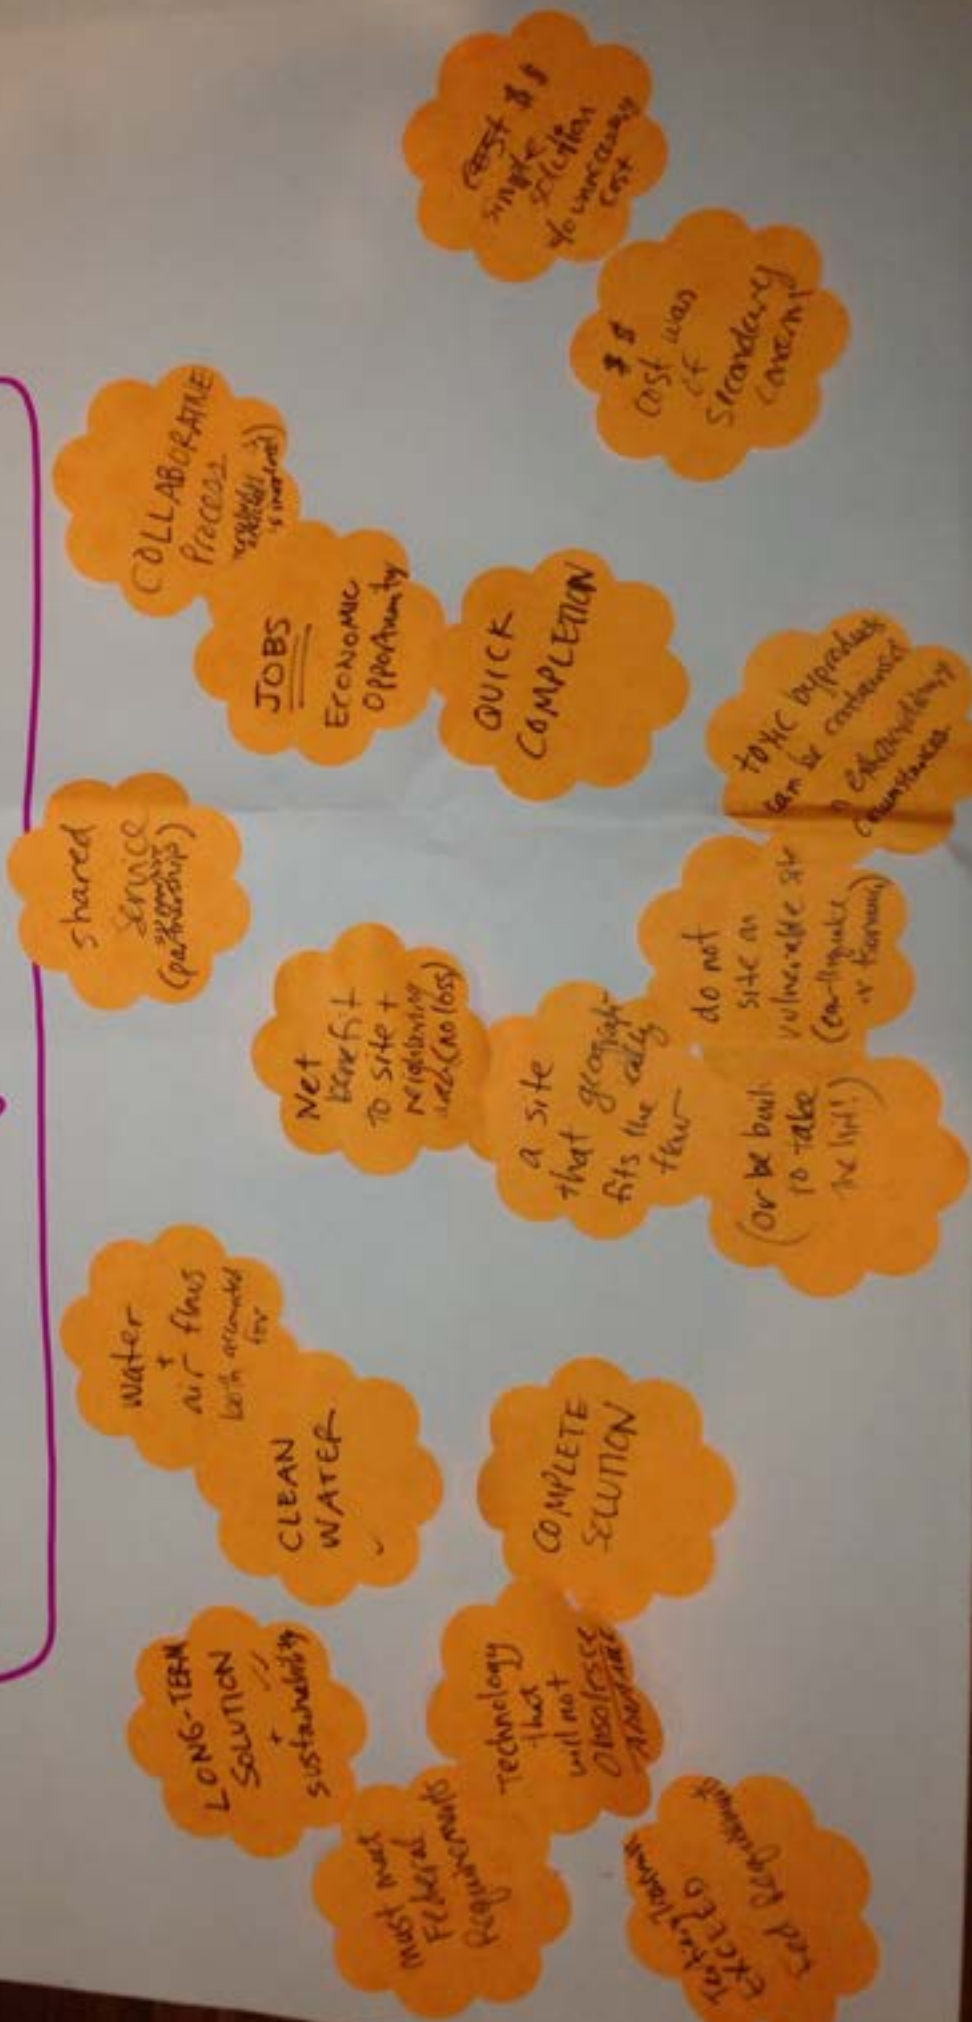 LONG-TERM
SOLUTION
+
sustainability
must meet
Federal
Requirements
EXCEED
Fed Requirements
Technology
that
will not
Obsolesce
water
+
air flows
both accounted
for
CLEAN
WATER
COMPLETE
SOLUTION
shared
service
(partnership)
Net
benefit
to site +
neighboring
(no loss)
a site
that geographi-
cally
fits the
flow
do not
site on
vulnerable site
(earthquake
or tsunami)
(or be built
to take
the hit!)
toxic byproducts
can be contained
extraordinary
circumstances
COLLABORATIVE
Process
JOBS
ECONOMIC
OPPORTUNITY
QUICK
COMPLETION
$ $
simple
solution
w/o unnecessary
cost
$ $
cost was
of
secondary
concern